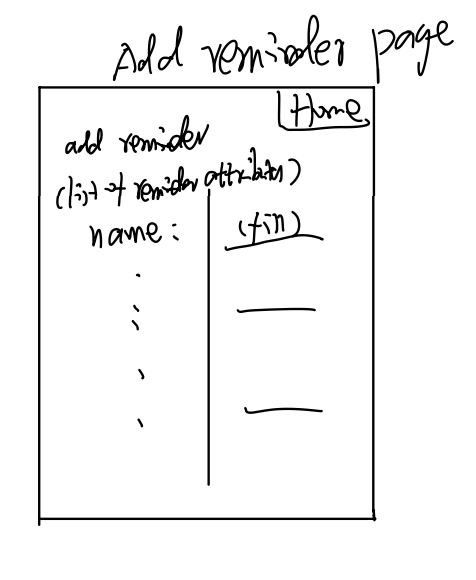 Add reminder page
Home
add reminder
(list of reminder attributes)
name: (fill)